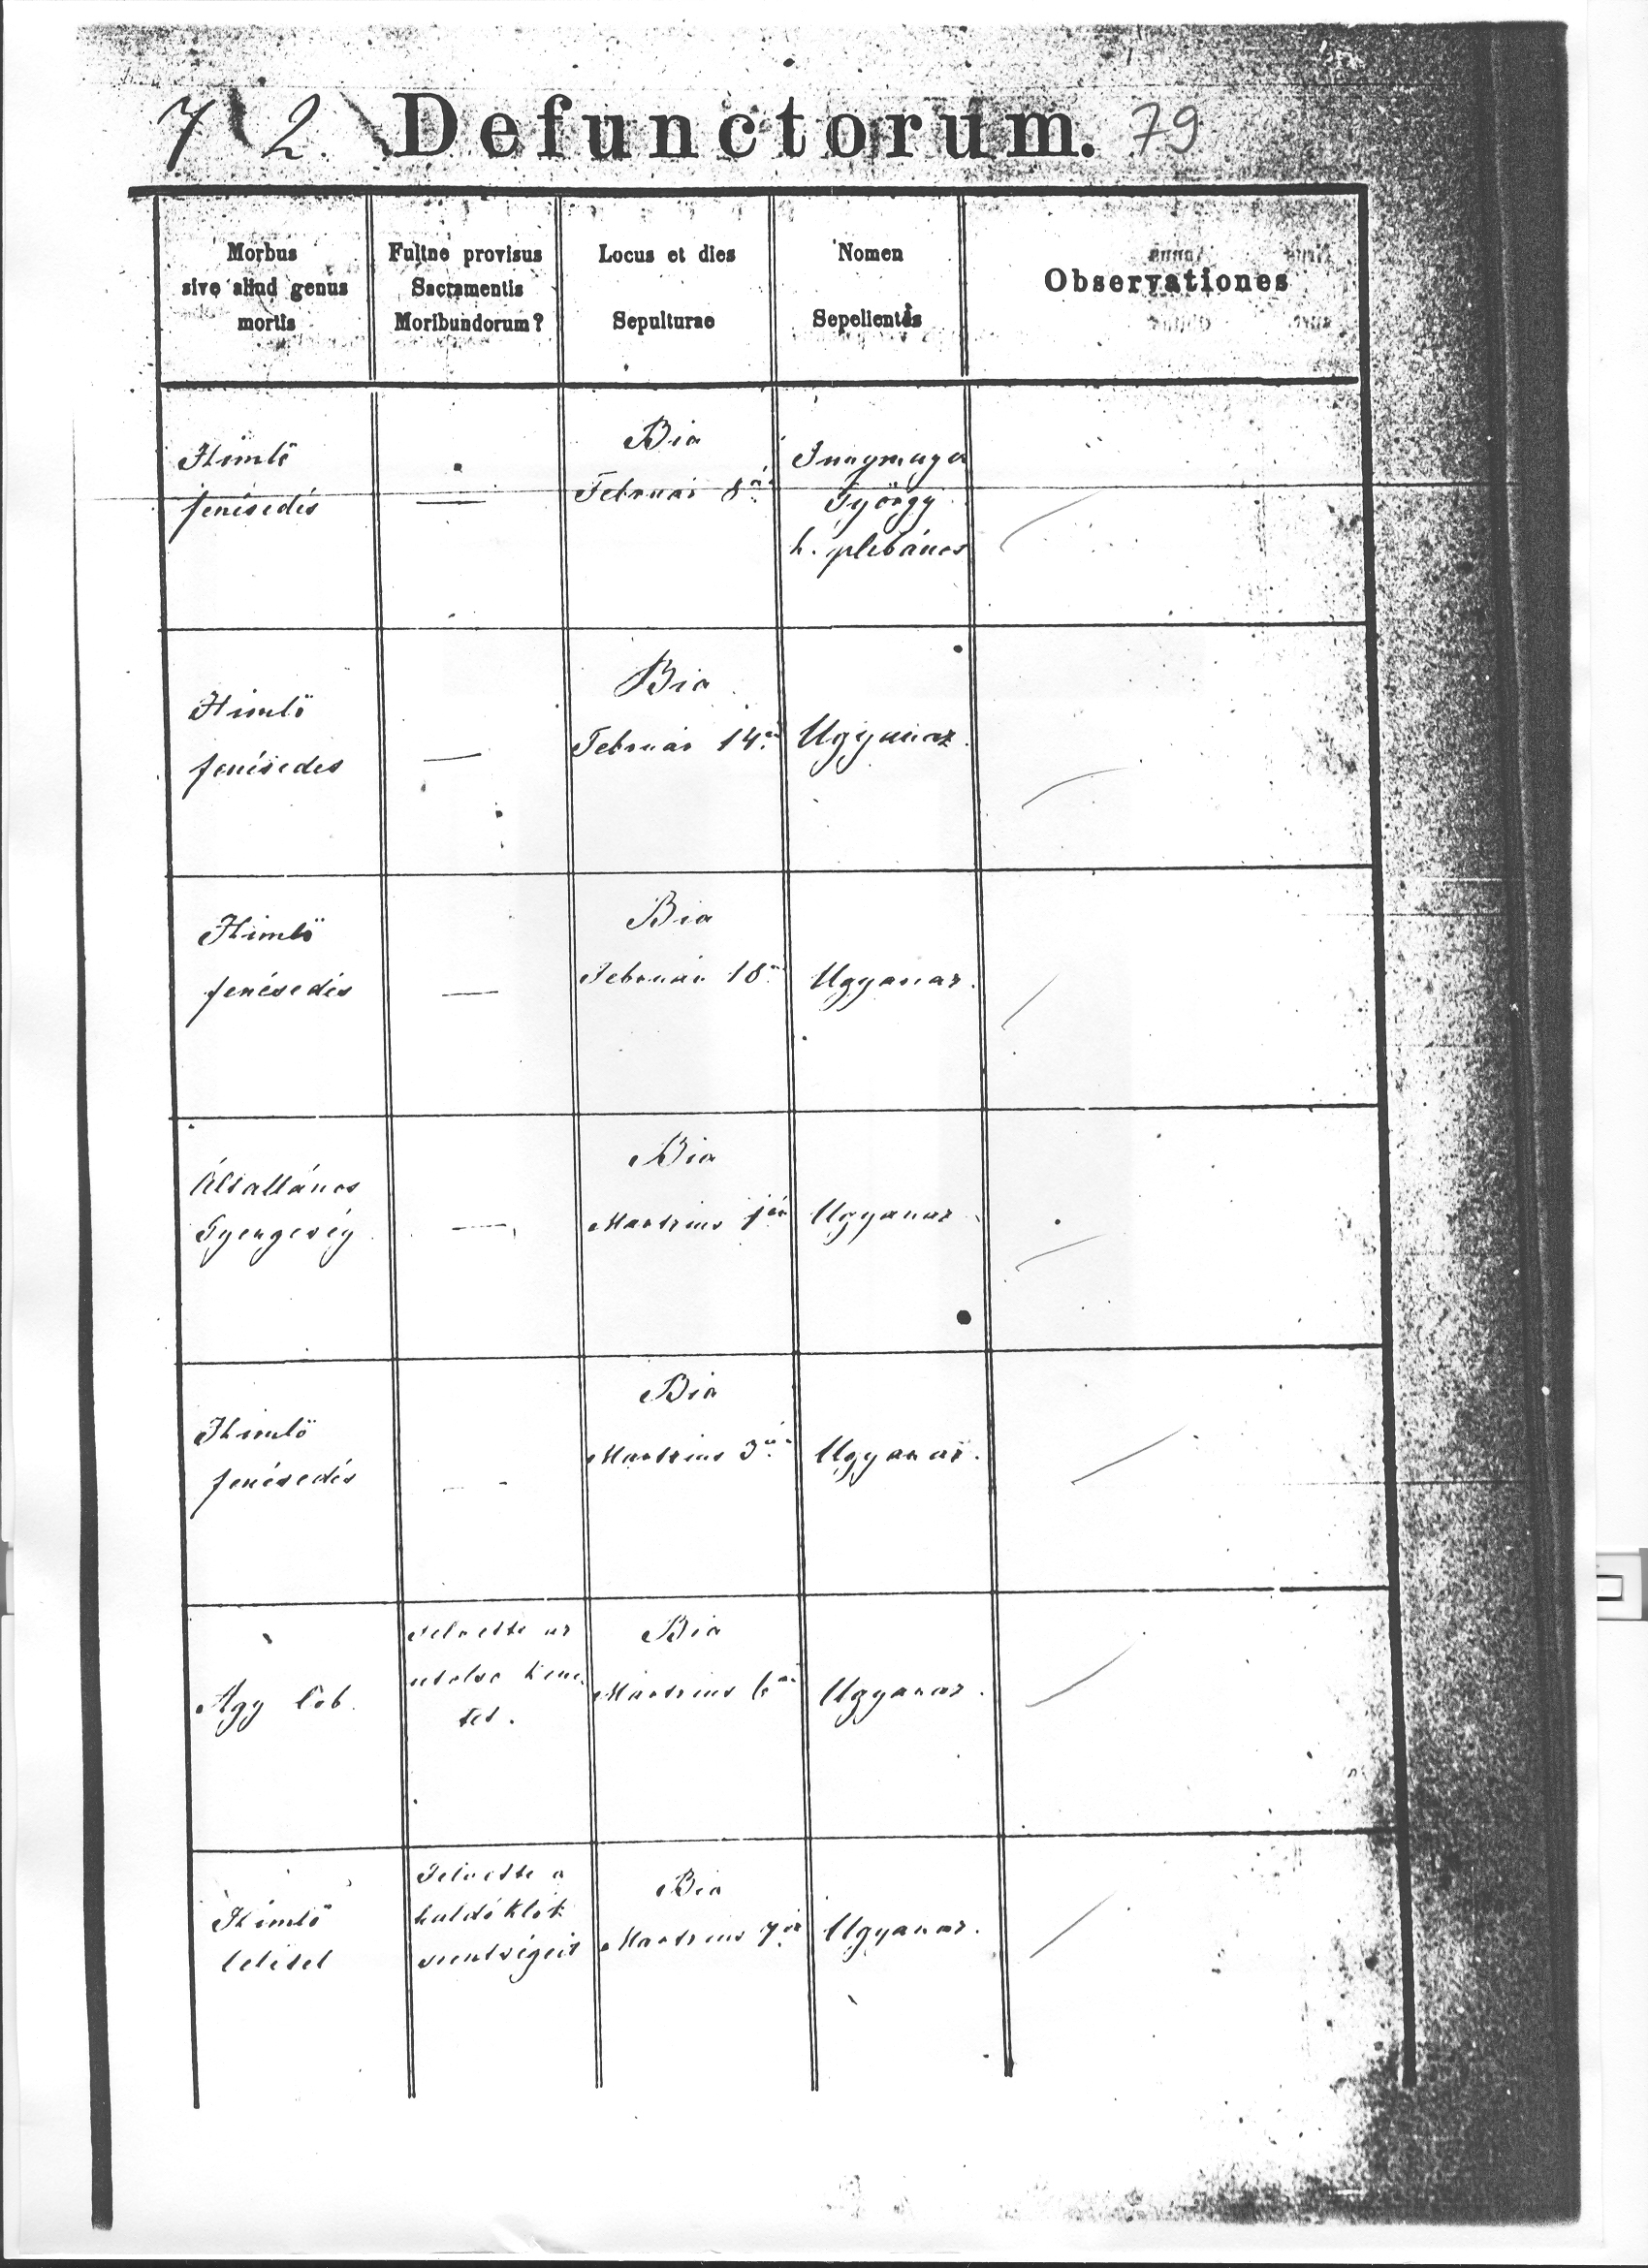 7 2. Defunctorum. 79
Morbus
sive aliud genus
mortis
Fuitne provisus
Sacramentis
Moribundorum?
Locus et dies
Sepulturae
Nomen
Sepelientis
Observationes
Himlő
fenésedés
—
Bia
Február 8án
György
h. plebános
Himlő
fenésedes
—
Bia
Február 14.
Ugyanaz.
Himlő
fenésedés
—
Bia
Február 18.
Ugyanaz.
Általlános
Gyengeség
—
Bia
Martzius 1én
Ugyanaz
Himlő
fenésedés
Bia
Martzius 3án
Ugyanaz.
Agy lob.
Felvette az
utolso kene
tet.
Bia
Martzius 6án
Ugyanaz.
Himlő
Felvette a
haldóklók
szentségeit
Bia
Martzius 7én
Ugyanaz.